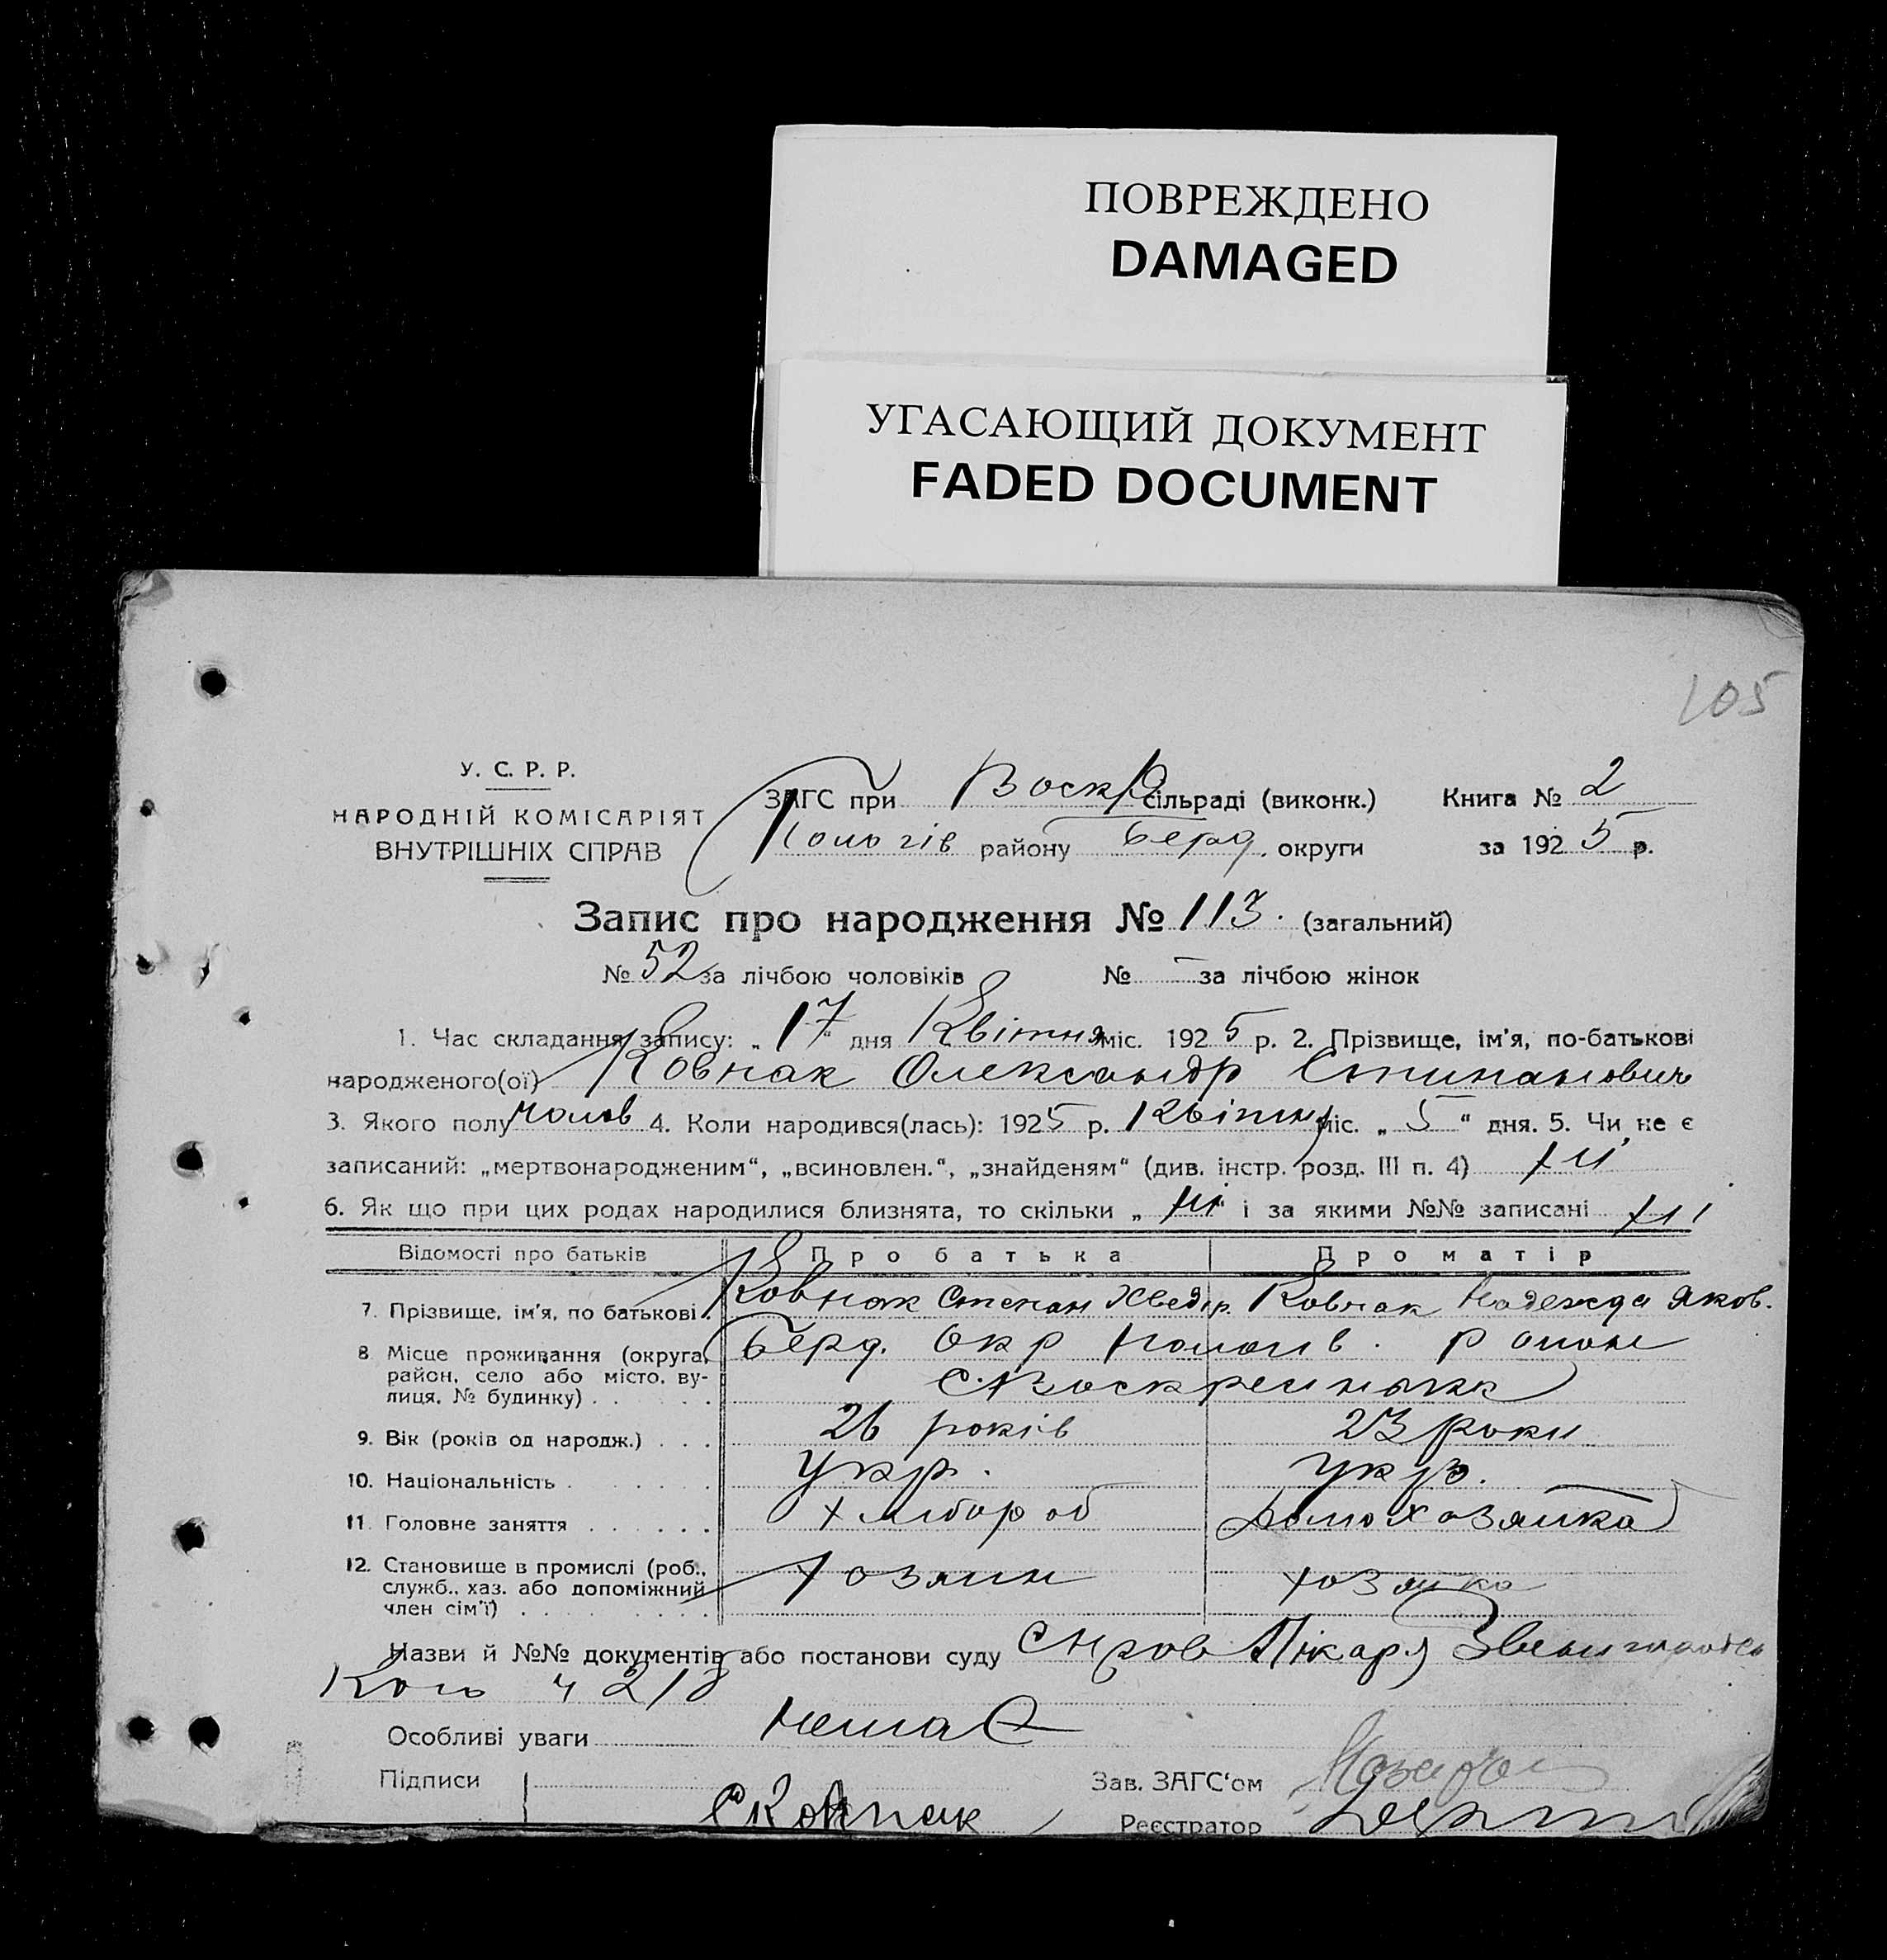 ПОВРЕЖДЕНО
DAMAGED
УГАСАЮЩИЙ ДОКУМЕНТ
FADED DOCUMENT
105
У. С. Р. Р.
НАРОДНІЙ КОМІСАРІЯТ
ВНУТРІШНІХ СПРАВ
ЗАГС при Воскр сільраді (виконк.) Книга № 2
Пологів району Берд. округи за 1925 р.
Запис про народження № 113. (загальний)
№ 52 за лічбою чоловіків № - за лічбою жінок
1. Час складання запису: „17“ дня Квітня міс. 1925 р. 2. Прізвище, ім'я, по-батькові
народженого(ої) Ковпак Олександр Степанович
3. Якого полу чолов 4. Коли народився(лась): 1925 р. Квітня міс. „5“ дня. 5. Чи не є
записаний: „мертвонародженим“, „всиновлен.“, „знайденям“ (див. інстр. розд. III п. 4) ні
6. Як що при цих родах народилися близнята, то скільки „ні“ і за якими №№ записані ні
Відомості про батьків Про батька Про матір
7. Прізвище, ім'я, по батькові. Ковпак Степан Хведір. Ковпак Надежда Яков.
8 Місце проживання (округа, Берд. Окр Пологів. район
район, село або місто, ву-
лиця, № будинку) . . . . С.
9. Вік (років од народж.) . . . 26 років 23 роки
10. Національність . . . . . Укр. Укр.
11. Головне заняття . . . . . . хлібороб домохозяйка
12. Становище в промислі (роб., хозяин хозяйка
служб., хаз. або допоміжний
член сім'ї) . . . . . . .
Назви й №№ документів або постанови суду Лікаря
кого ч 213
Особливі уваги Немає
Підписи Зав. ЗАГС'ом
СКовпак Реєстратор